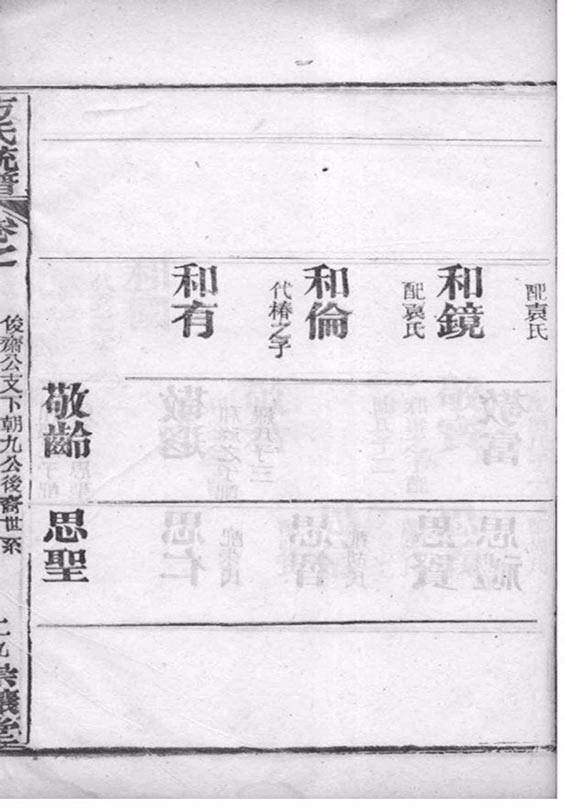 配袁氏
和鏡
配袁氏
和倫
代椿之子
和有
敬齡
思聖
方氏統譜
卷之
俊齋公支下朝九公後裔世系